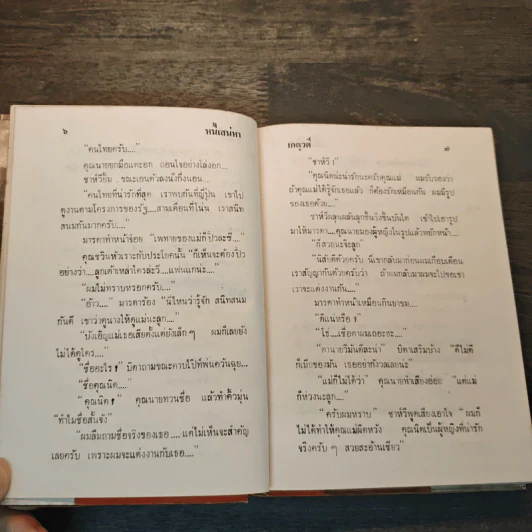 ๖ หนี้เสน่หา
"คนไทยครับ...."
คุณนายยกมือแตะอก ถอนใจอย่างโล่งอก....
ชาห์วียิ้ม ขณะเอนตัวลงนั่งกึ่งนอน....
"คนไทยที่น่ารักที่สุด เราพบกันที่ญี่ปุ่น เขาไป
ดูงานตามโครงการของรัฐ....สามเดือนที่โน่น เราสนิท
สนมกันมากครับ...."
มารดาทำหน้าข้อย "เพทายของแม่ก็ปิ๋วละซี...."
คุณชวินหัวเราะกับประโยคนั้น "ก็เห็นจะต้องปิ๋ว
อย่างว่า....ลูกเต้าเหล่าใครล่ะวี....แฟนแกน่ะ...."
"ผมไม่ทราบหรอกครับ...."
"อ้าว...." มารดาร้อง "นี่ไหนว่ารู้จัก สนิทสนม
กันดี เขาว่าดูนางให้ดูแม่นะลูก...."
"บังเอิญแม่เธอเสียตั้งแต่ยังเล็ก ๆ ผมก็เลยยัง
ไม่ได้ดูใคร...."
"ชื่ออะไร !" บิดาถามขณะคาบไปป์พ่นควันฉุย....
"ชื่อคุณนิด...."
"คุณนิด !" คุณนายทวนชื่อ แล้วทำคิ้วมุ่น
"ทำไมชื่อสั้นจัง"
"ผมลืมถามชื่อจริงของเธอ....แต่ไม่เห็นจะสำคัญ
เลยครับ เพราะผมจะแต่งงานกับเธอ...."
เกตุวดี ๗
"ชาห์วี !"
"คุณนิดน่ะน่ารักนะครับคุณแม่ ผมรับรองว่า
ถ้าคุณแม่ได้รู้จักเธอแล้ว ก็ต้องรักเหมือนกัน ผมมีรูป
ของเธอด้วย...."
ชาห์วีลุกเผ่นผลุงขึ้นวิ่งขึ้นบันได เข้าไปเอารูป
มาให้มารดา....คุณนายมองผู้หญิงในรูปแล้วพยักหน้า....
"ก็สวยนะจ๊ะลูก"
"นิสัยดีด้วยครับ นี่เขากลับมาก่อนผมเกือบเดือน
เราสัญญากันด้วยครับว่า ถ้าผมกลับมาผมจะไปขอเขา
เราจะแต่งงานกัน...."
มารดาทำหน้าเหมือนกินยาขม....
"ดีแน่หรือ !"
"โธ่....เชื่อตาผมเถอะฮะ...."
"ตานายวีมันดีละน่า" บิดาเสริมบ้าง "ดีไม่ดี
ก็เมียของมัน เธออย่ากังวลเลยน่ะ"
"แม่ก็ไม่ได้ว่า" คุณนายทำเสียงอ่อย "แต่แม่
ก็ห่วงนะลูก...."
"ครับผมทราบ" ชาห์วีพูดเสียงเอาใจ "ผมก็
ไม่ได้ทำให้คุณแม่ผิดหวัง คุณนิดเป็นผู้หญิงที่น่ารัก
จริงครับ ๆ สวยสะอ้านเชียว"